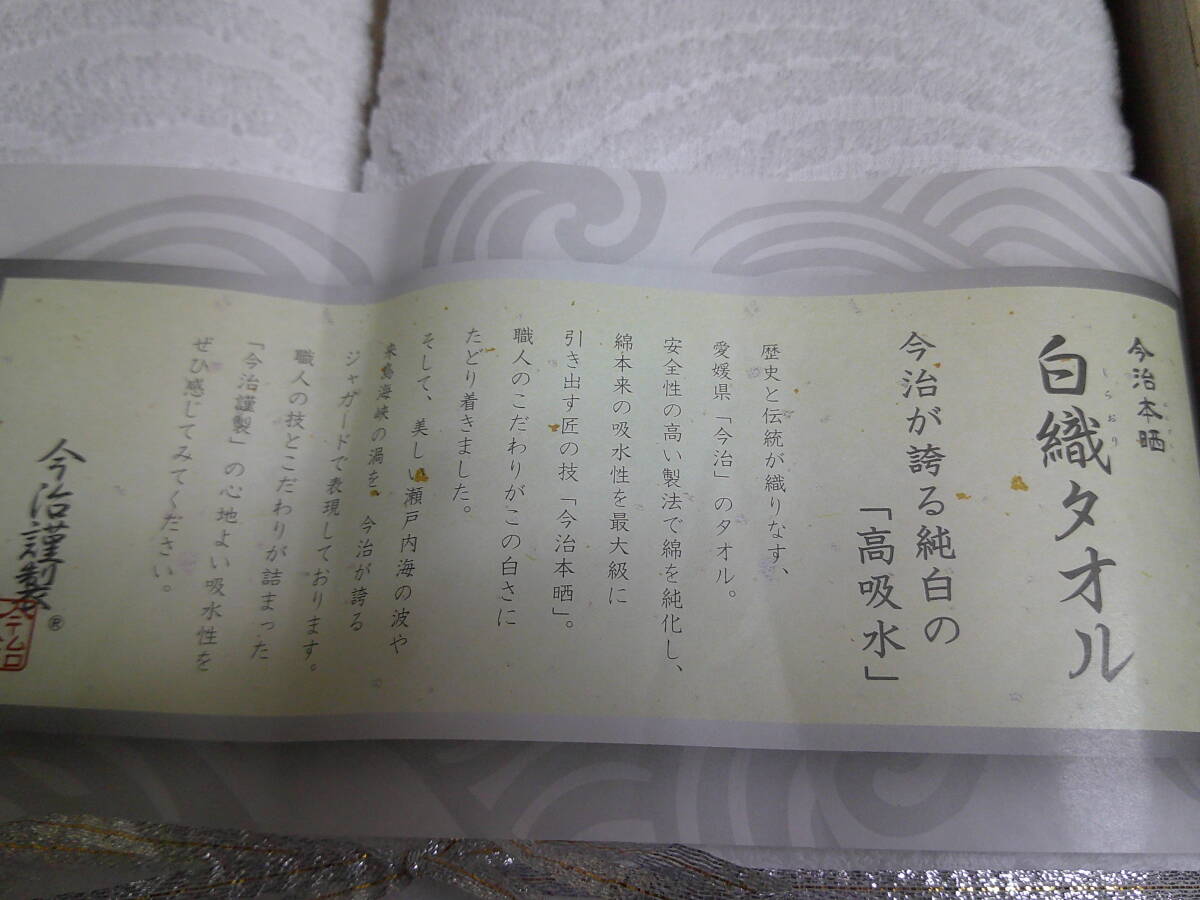 今治本晒
白織タオル
しらおり
今治が誇る純白の
「高吸水」
歴史と伝統が織りなす、
愛媛県「今治」のタオル。
安全性の高い製法で綿を純化し、
綿本来の吸水性を最大級に
引き出す匠の技「今治本晒」。
職人のこだわりがこの白さに
たどり着きました。
そして、美しい瀬戸内海の波や
来島海峡の渦を、今治が誇る
ジャガードで表現しております。
職人の技とこだわりが詰まった
「今治謹製」の心地よい吸水性を
ぜひ感じてみてください。
今治謹製®